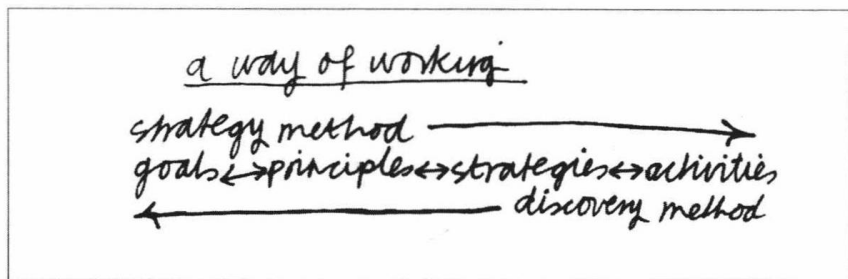 a way of working
strategy method
goals↔principles↔strategies↔activities
discovery method